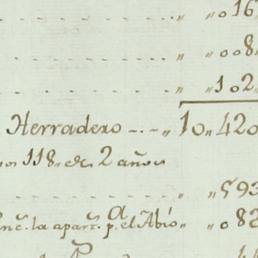 " " 016
" " 008
" " 102
Herradero - .. " 10 " 420
118 es 2 años
" " 593
la apars. p. el Abío " " 082